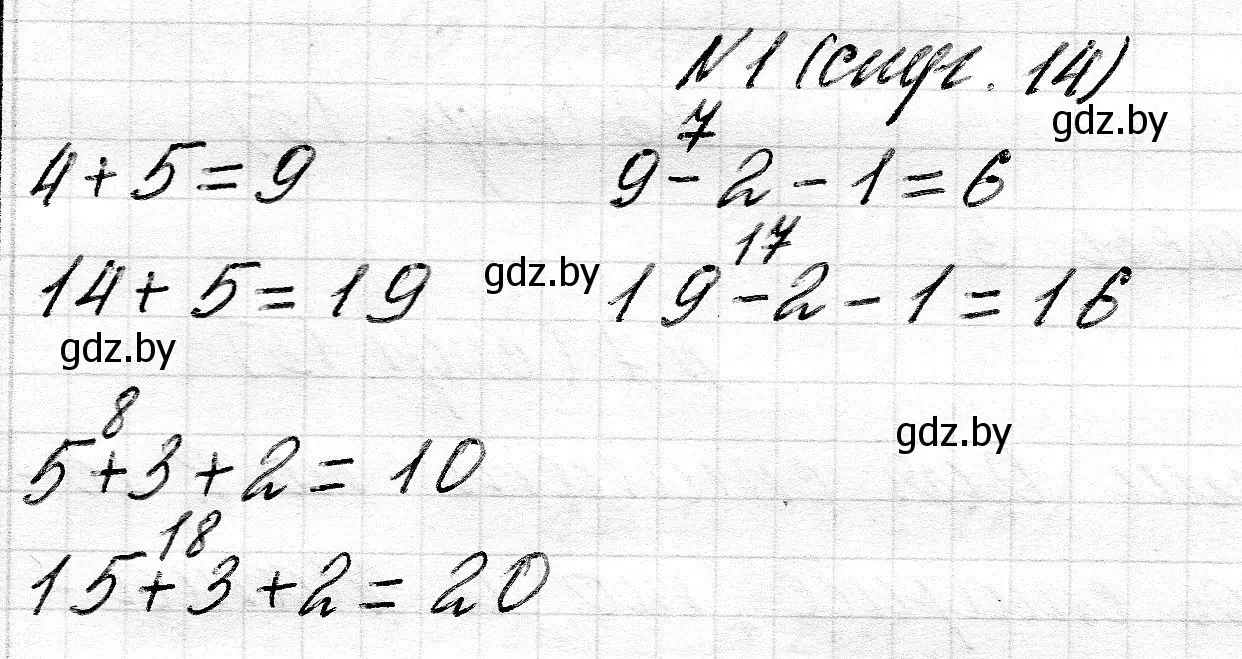 №1 (стр. 14)
gdz.by
7
4+5=9 9-2-1=6
17
14+5=19 gdz.by 19-2-1=16
gdz.by
8
5+3+2=10 gdz.by
18
15+3+2=20